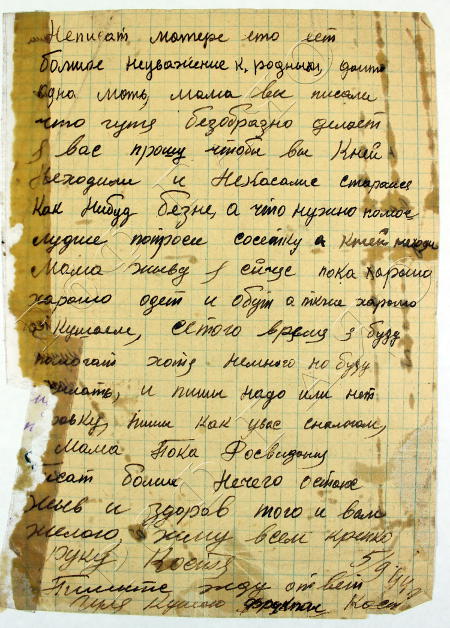 Неписат матере ето ест
болшое неуважение к родным,
одна мать, мама вы писали
что гутя безобразно делает
я вас прошу чтобы вы Кней
неходили и Некасалис старайся
Как Нибуд безне, а что нужно
лудше попроси соседку а Кней неходи
Мама живу я сичас пока харашо
харашо одет и обут а также харашо
Кушаем, сетого время я буду
помогат хотя немного но буду
и пиши надо или нет
пиши как увас сналогом,
Мама Пока Досвидания
писат болше Нечего остаюс
жив и здоров того и вам
желаю, жму всем крепко
руку. Костя 5/9
Пишите жду ответ
Кушаю фрукты Кост